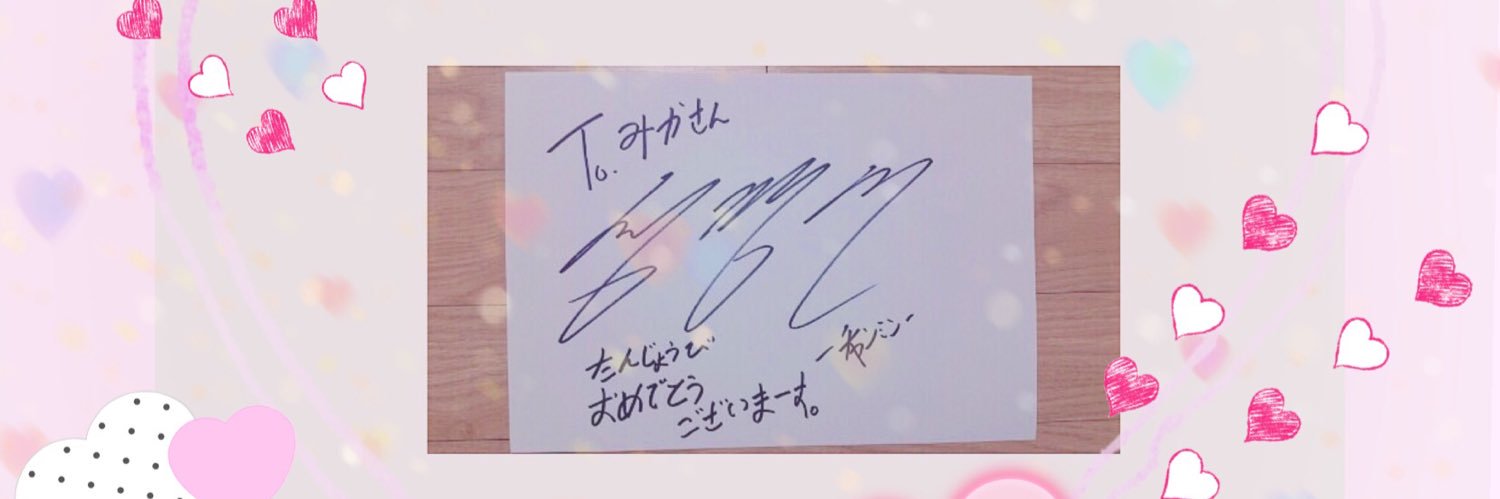 To.みかさん
たんじょうび
おめでとう
ございまーす。